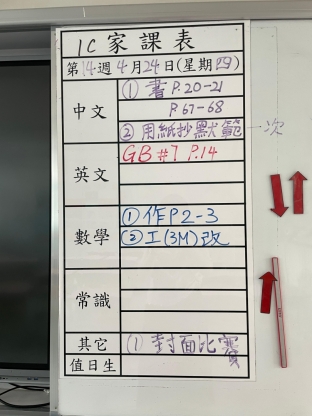 1C家課表
第14週4月24日(星期四)
中文
① 書 P.20-21
P.67-68
② 用紙抄默範一次
英文
GB #7 P.14
數學
① 作P2-3
② 工(3M)改
常識
其它
(1) 封面比賽
值日生